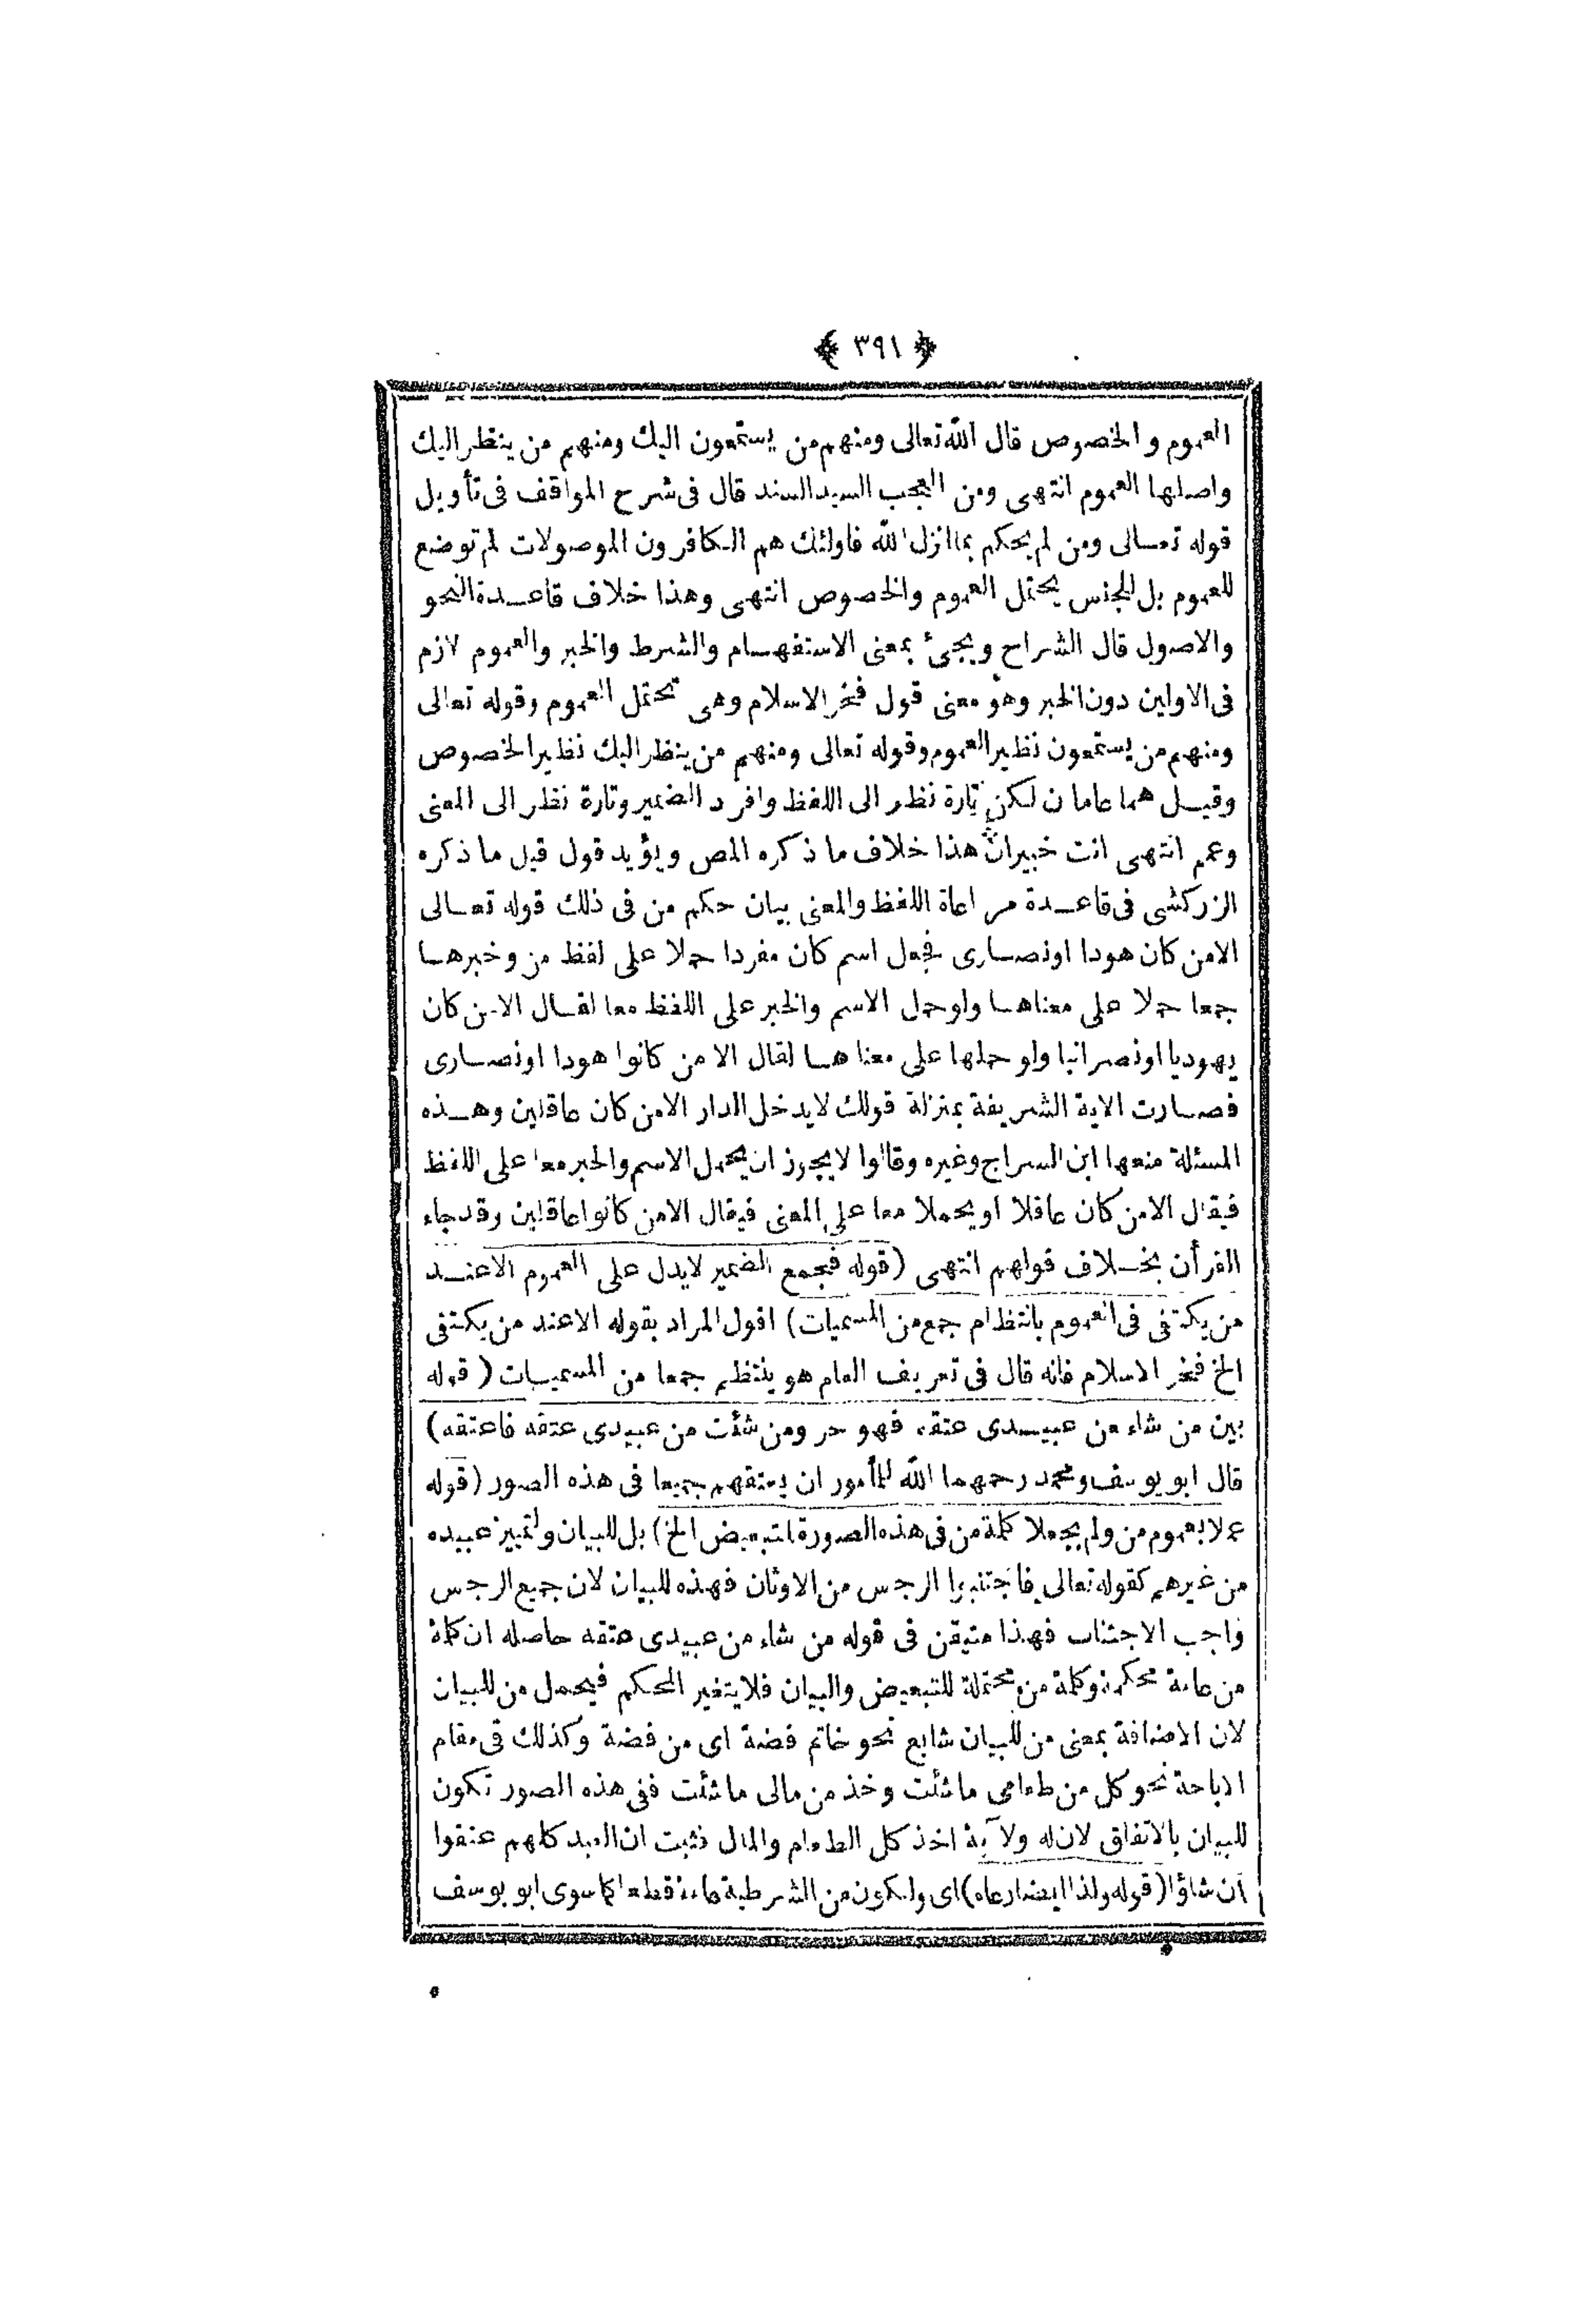 ﴿ ٣٩١ ﴾
العموم والخصوص قال الله تعالى ومنهم من يستمعون اليك ومنهم من ينظر اليك
واصلها العموم انتهى ومن العجب السيد السند قال فى شرح المواقف فى تأويل
قوله تعالى ومن لم يحكم بما انزل الله فاولئك هم الكافرون الموصولات لم توضع
للعموم بل للجنس يحتمل العموم والخصوص انتهى وهذا خلاف قاعدة النحو
والاصول قال الشراح ويجئ بمعنى الاستفهام والشرط والخبر والعموم لازم
فى الاولين دون الخبر وهو معنى قول فخر الاسلام وهى تحتمل العموم وقوله تعالى
ومنهم من يستمعون نظير العموم وقوله تعالى ومنهم من ينظر اليك نظير الخصوص
وقيل هما عامان لكن تارة نظر الى اللفظ وافرد الضمير وتارة نظر الى المعنى
وعم انتهى انت خبير ان هذا خلاف ما ذكره المص ويؤيد قول قيل ما ذكره
الزركشى فى قاعدة مراعاة اللفظ والمعنى بيان حكم من فى ذلك قوله تعالى
الامن كان هودا اونصارى فجعل اسم كان مفردا حملا على لفظ من وخبرها
جمعا حملا على معناها ولوحمل الاسم والخبر على اللفظ معا لقال الامن كان
يهوديا اونصرانيا ولو حملها على معناها لقال الا من كانوا هودا اونصارى
فصارت الاية الشريفة بمنزلة قولك لايدخل الدار الامن كان عاقلين وهذه
المسئلة منعها ابن السراج وغيره وقالوا لايجوز ان يحمل الاسم والخبر معا على اللفظ
فيقال الامن كان عاقلا او يحملا معا على المعنى فيقال الامن كانوا عاقلين وقد جاء
القرأن بخلاف قولهم انتهى (قوله فجمع الضمير لايدل على العموم الاعند
من يكتفى فى العموم بانتظام جمع من المسميات) اقول المراد بقوله الاعند من يكتفى
الخ فخر الاسلام فانه قال فى تعريف العام هو ينتظم جمعا من المسميات (قوله
بين من شاء من عبيدى عتقه فهو حر ومن شئت من عبيدى عتقه فاعتقه)
قال ابو يوسف ومحمد رحمهما الله للمأمور ان يعتقهم جميعا فى هذه الصور (قوله
عملا بعموم من ولم يجعلا كلمة من فى هذه الصورة للتبعيض الخ) بل للبيان ولتمييز عبيده
من غيرهم كقوله تعالى فاجتنبوا الرجس من الاوثان فهذه للبيان لان جميع الرجس
واجب الاجتناب فهذا متيقن فى قوله من شاء من عبيدى عتقه حاصله ان كلمة
من عامة محكمة وكلمة من محتملة للتبعيض والبيان فلايتغير المحكم فيحمل من للبيان
لان الاضافة بمعنى من للبيان شايع نحو خاتم فضة اى من فضة وكذلك فى مقام
الاباحة نحو كل من طعامى ماشئت وخذ من مالى ماشئت ففى هذه الصور تكون
للبيان بالاتفاق لان له ولاية اخذ كل الطعام والمال فثبت ان العبد كلهم عتقوا
ان شاؤا (قوله ولذا ايضا رعاه) اى ولكون من الشرطية عامة قطعا كما سوى ابو يوسف